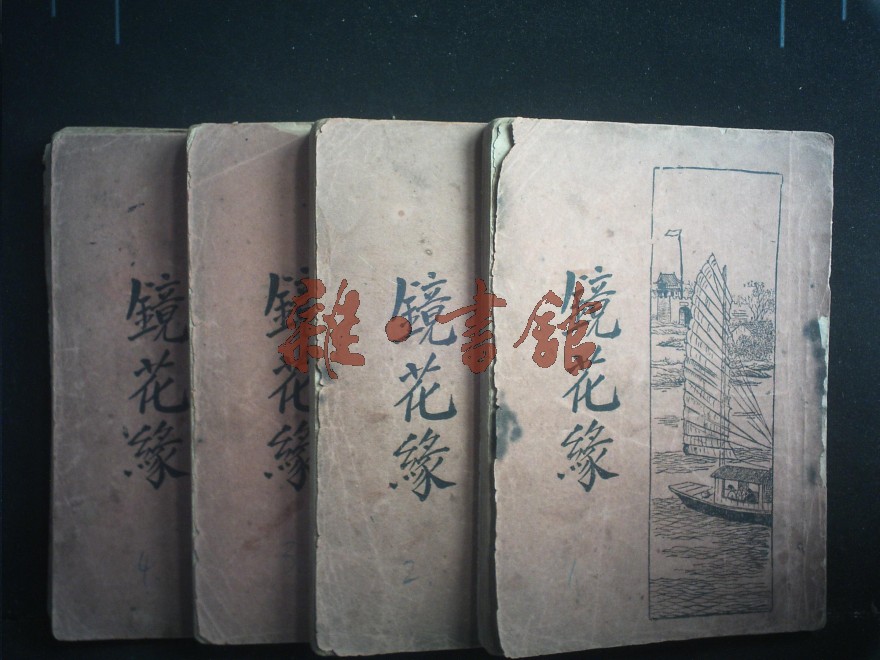 鏡花緣
4
鏡花緣
鏡花緣
2
鏡花緣
1
雜·書舘